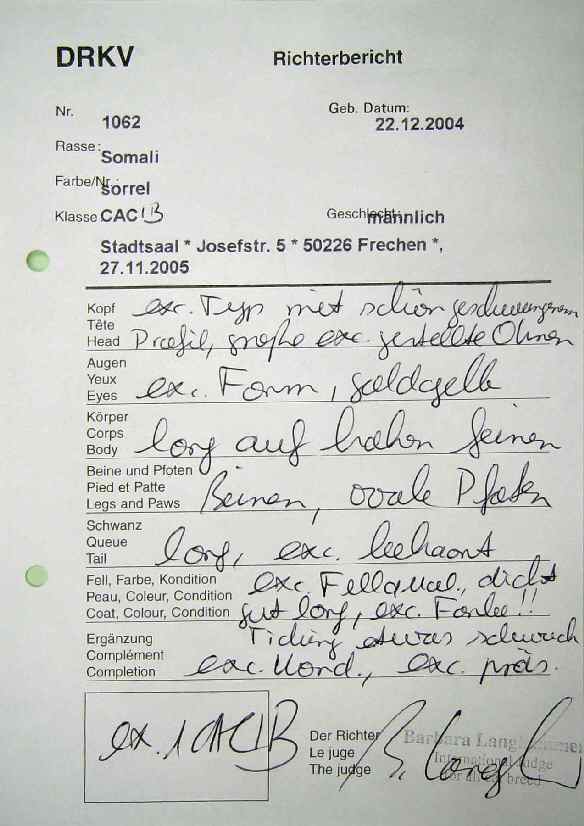 DRKV Richterbericht
Nr. 1062 Geb. Datum: 22.12.2004
Rasse: Somali
Farbe/Nr.: Sorrel
Klasse: CACIB Geschlecht: männlich
Stadtsaal * Josefstr. 5 * 50226 Frechen *,
27.11.2005
Kopf exc. Typ mit schön geschwungenem
Tête
Head Profil, große exc. gestellte Ohren
Augen
Yeux
Eyes exc. Form, goldgelb
Körper
Corps
Body long auf hohen feinen
Beine und Pfoten
Pied et Patte
Legs and Paws Beinen, ovale Pfoten
Schwanz
Queue
Tail long, exc. behaart
Fell, Farbe, Kondition exc. Fellqual., dicht
Peau, Coleur, Condition
Coat, Colour, Condition gut long, exc. Farbe!!
Ergänzung Ticking etwas schwach
Complément
Completion exc. Kond., exc. präs.
ex. 1 CACIB
Der Richter
Le juge
The judge
B. Langh
Barbara Langhammer
International Judge
for all cat breed